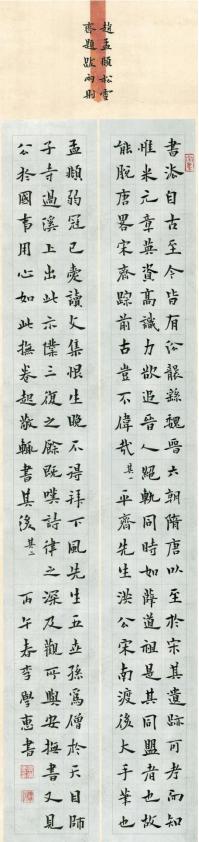 趙孟頫松雪
齋題跋兩則
書法自古至今皆有沿襲繇魏晉六朝隋唐以至於宋其遺跡可考而知
惟米元章英資高識力欲追晉人繩軌同時如薛道祖是其同盟者也故
能脫唐畧宋齊踪前古豈不偉哉 其一 平齋先生洪公宋南渡後大手筆也
孟頫弱冠已愛讀文集恨生晚不得拜下風先生五世孫爲僧於天目師
子寺過溪上出此示僕三復之餘既嘆詩律之深及觀所與安撫書又見
公於國事用心如此撫卷起敬輒書其後 其二 丙午春李學惠書